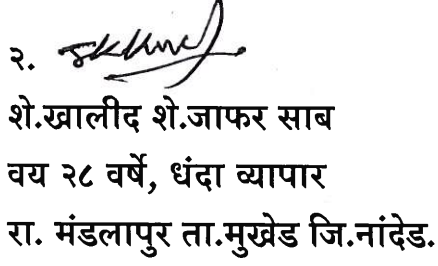 २.
शे.खालीद शे.जाफर साब
वय २८ वर्षे, धंदा व्यापार
रा. मंडलापुर ता.मुखेड जि.नांदेड.